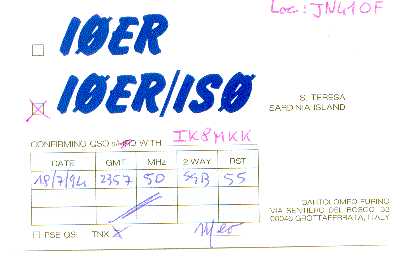 Loc: JN41OF
IØER
IØER/ISØ
S. TERESA
SARDINIA ISLAND
CONFIRMING QSO WITH IK8MKK
DATE GMT MHz 2 WAY RST
18/7/94 2357 50 SSB 55
BARTOLOMEO FURINO
VIA SENTIERO DEL BOSCO, 
00046 GROTTAFERRATA, ITALY
PSE QSL TNX X